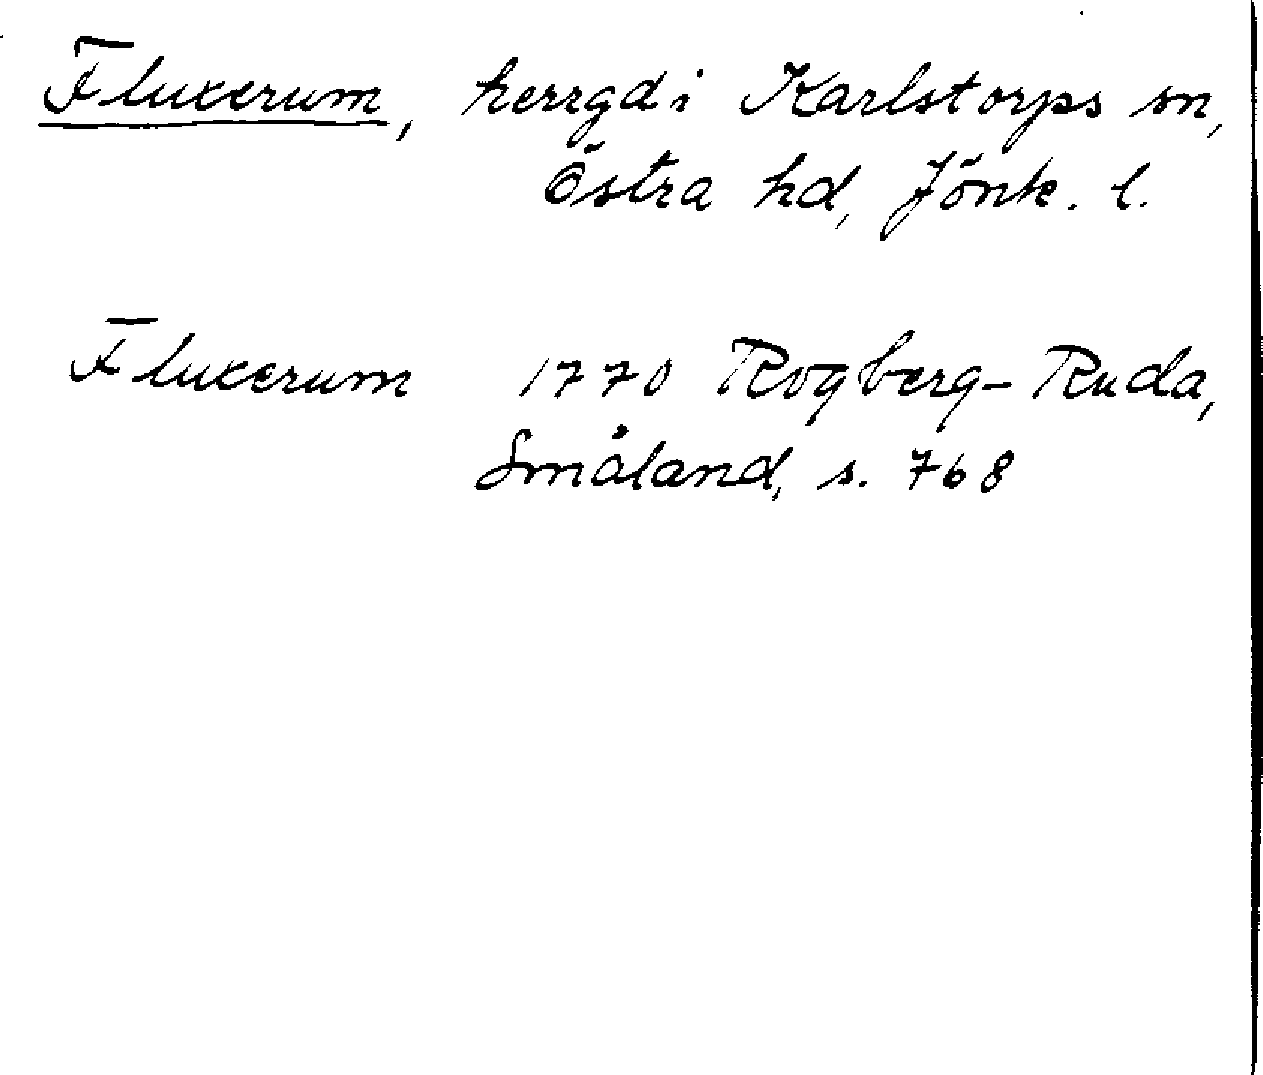 Fluxerum, herrgd i Karlstorps sn,
Östra hd, Jönk. l.
Fluxerum 1770 Rogberg-Ruda,
Småland, s. 768